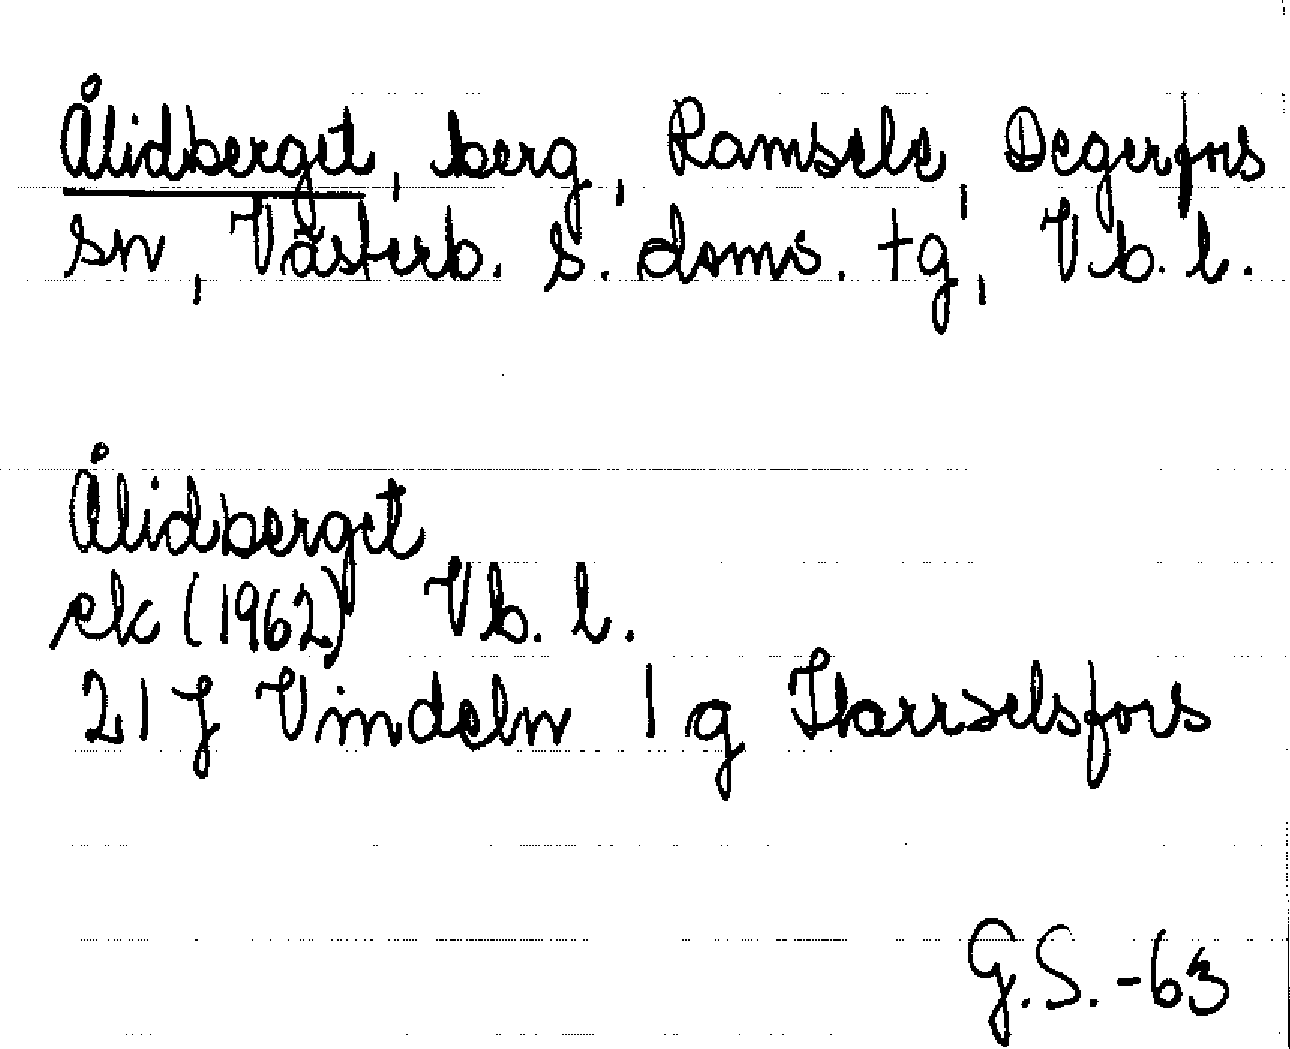 Ålidberget, berg, Ramsele, Degerfors
sn, Västerb. s. doms. tg, Vb. l.
Ålidberget
ek (1962) Vb. l.
21 J Vindeln 1 g Harrselsfors
G.S. -63